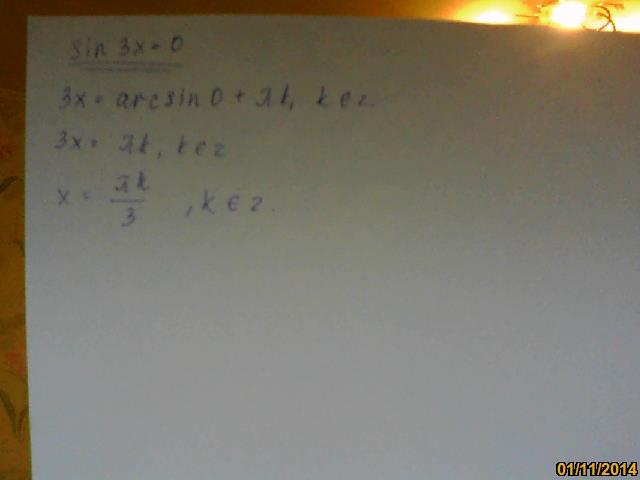 sin 3x = 0
3x = arcsin 0 + πk, k ∈ z.
3x = πk, k ∈ z
x = πk/3, k ∈ z.
01/11/2014